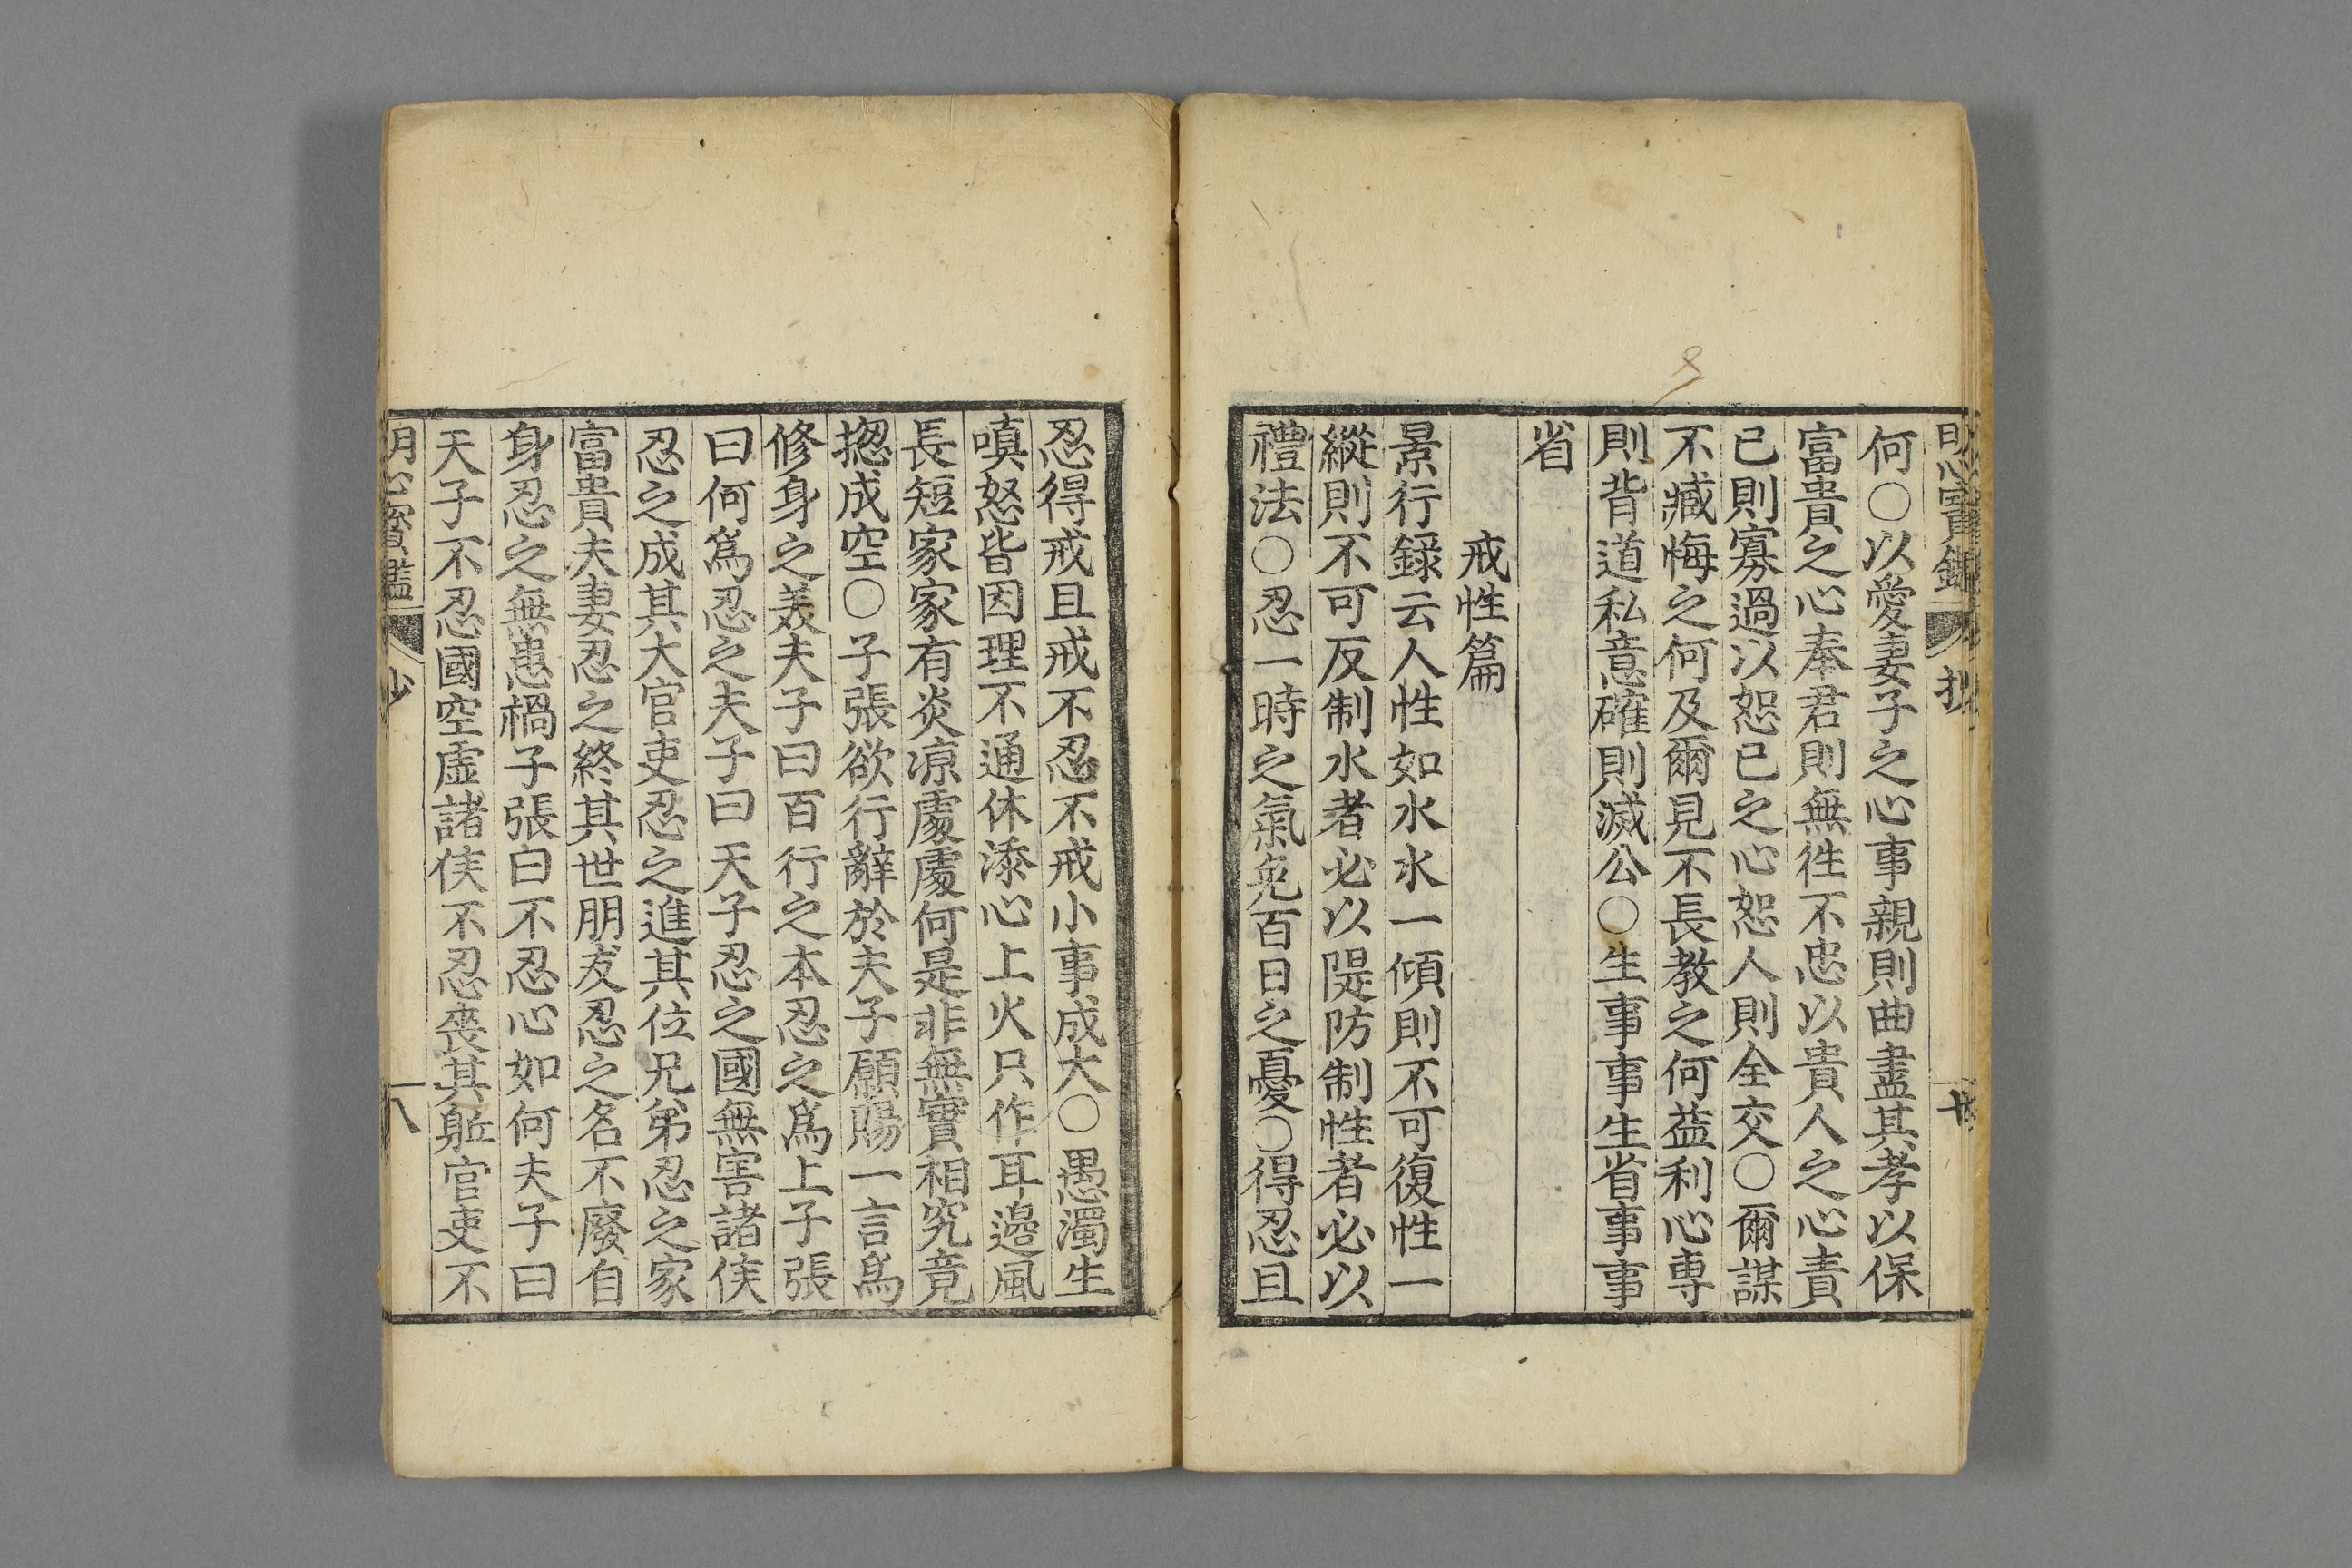 明心寶鑑 抄
何○以愛妻子之心事親則曲盡其孝以保
富貴之心奉君則無徃不忠以責人之心責
已則寡過以恕已之心恕人則全交○爾謀
不臧悔之何及爾見不長教之何益利心專
則背道私意確則滅公○生事事生省事事
省
戒性篇
景行録云人性如水水一傾則不可復性一
縱則不可反制水者必以隄防制性者必以
禮法○忍一時之氣免百日之憂○得忍且
忍得戒且戒不忍不戒小事成大○愚濁生
嗔怒皆因理不通休添心上火只作耳邊風
長短家家有炎凉處處何是非無實相究竟
揔成空○子張欲行辭於夫子願賜一言爲
修身之美夫子曰百行之本忍之爲上子張
曰何爲忍之夫子曰天子忍之國無害諸侯
忍之成其大官吏忍之進其位兄弟忍之家
富貴夫妻忍之終其世朋友忍之名不廢自
身忍之無患禍子張曰不忍心如何夫子曰
天子不忍國空虛諸侯不忍喪其軀官吏不
明心寶鑑 抄 八